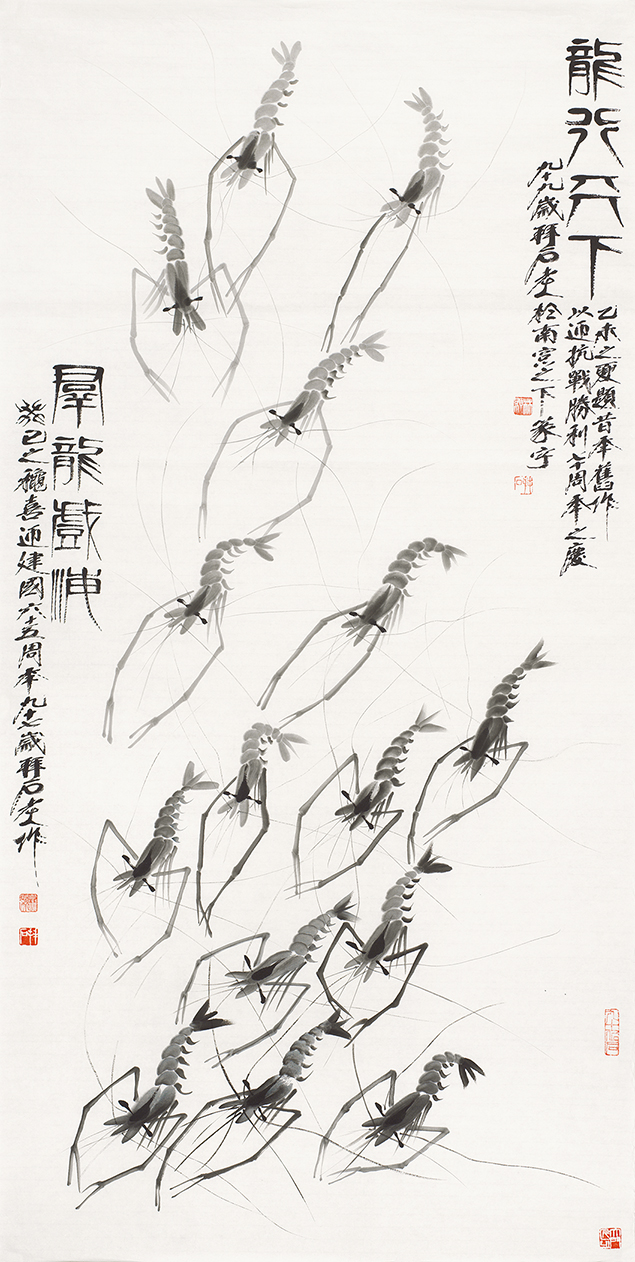 龍行天下
乙未之夏題昔年舊作
以迎抗戰勝利七十周年之慶
九十九歲拜石老人於南京之下家宇
羣龍戲海
癸巳之穐喜迎建國六十五周年九十七歲拜石老人作